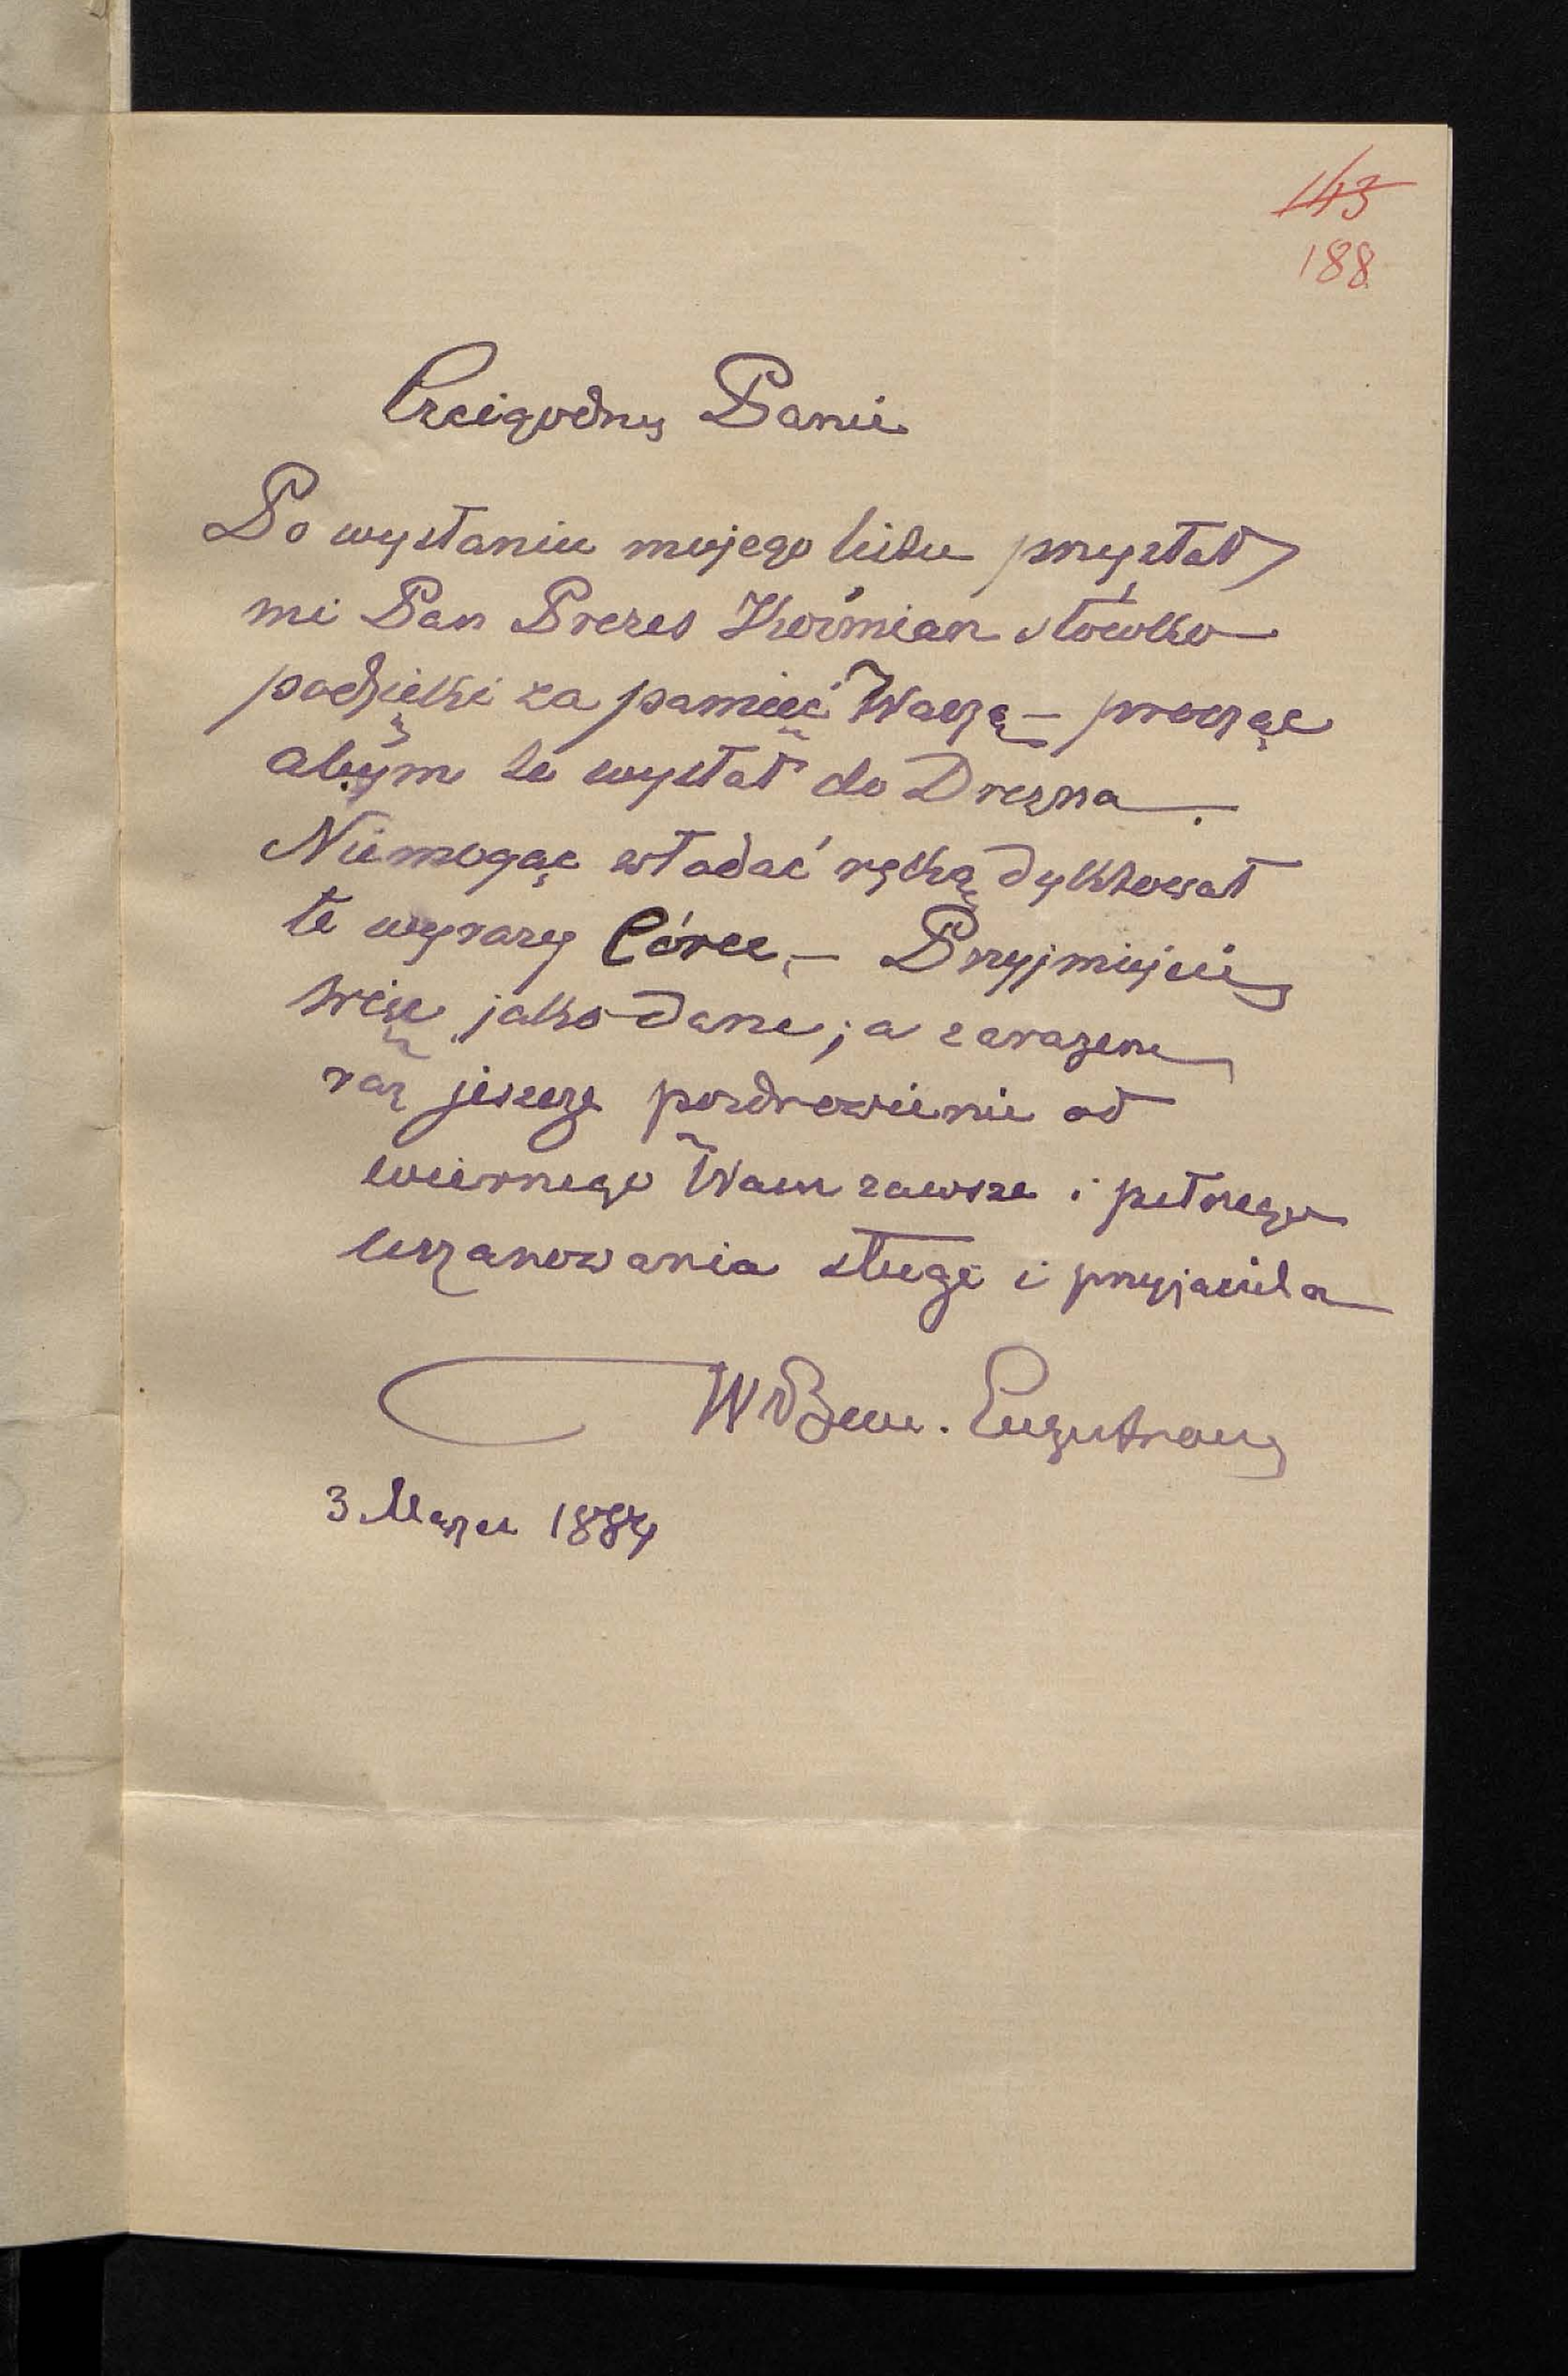 143
188
Czcigodny Panie
Po wysłaniu mojego listu przysłał
mi Pan Prezes Koźmian słówko
podzięki za pamięć Waszą – prosząc
abym to wysłał do Drezna.
Niemogąc władać ręką dyktował
te wyrazy Córce, – Przyjmijcie
więc jako dane; a zarazem
raz jeszcze pozdrowienie od
wiernego Wam zawsze i pełnego
uszanowania sługi i przyjaciela
3 Marca 1884